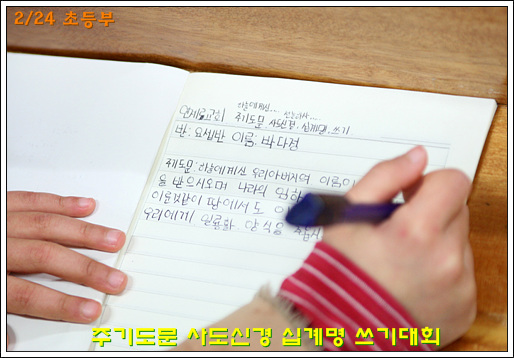 2/24 초등부
하늘에계신....
주기도문 사도신경. 십계명. 쓰기
반: 요셉반 이름: 박다정
주기도문: 하늘에계신 우리아버지여 이름이
을 받으시오며 나라의 임하
이룬것같이 땅에서 도
우리에게 일용할 양식을
주기도문 사도신경 십계명 쓰기대회